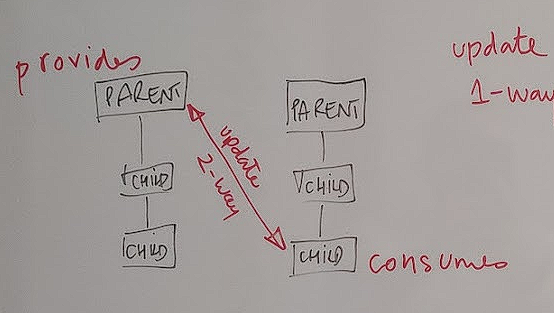 provides
PARENT
CHILD
CHILD
update
2-way
PARENT
CHILD
CHILD
consumes
update
1-way